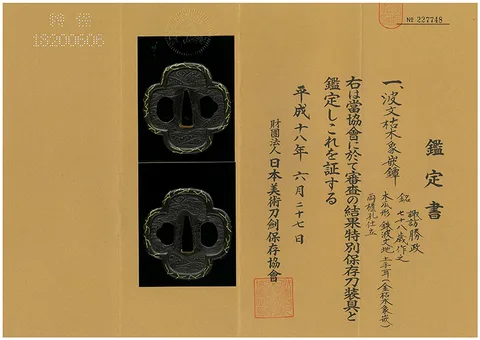 № 227748
鑑定書
一、波文枯木象嵌鐔
銘 諏訪勝政
七十八歳作之
木瓜形 鉄波文地 土手耳(金枯木象嵌)
両櫃孔仕立
右は當協會に於て審査の結果特別保存刀装具と
鑑定しこれを証する
平成十八年六月二十七日
財團法人日本美術刀劍保存協會
特保
18200606